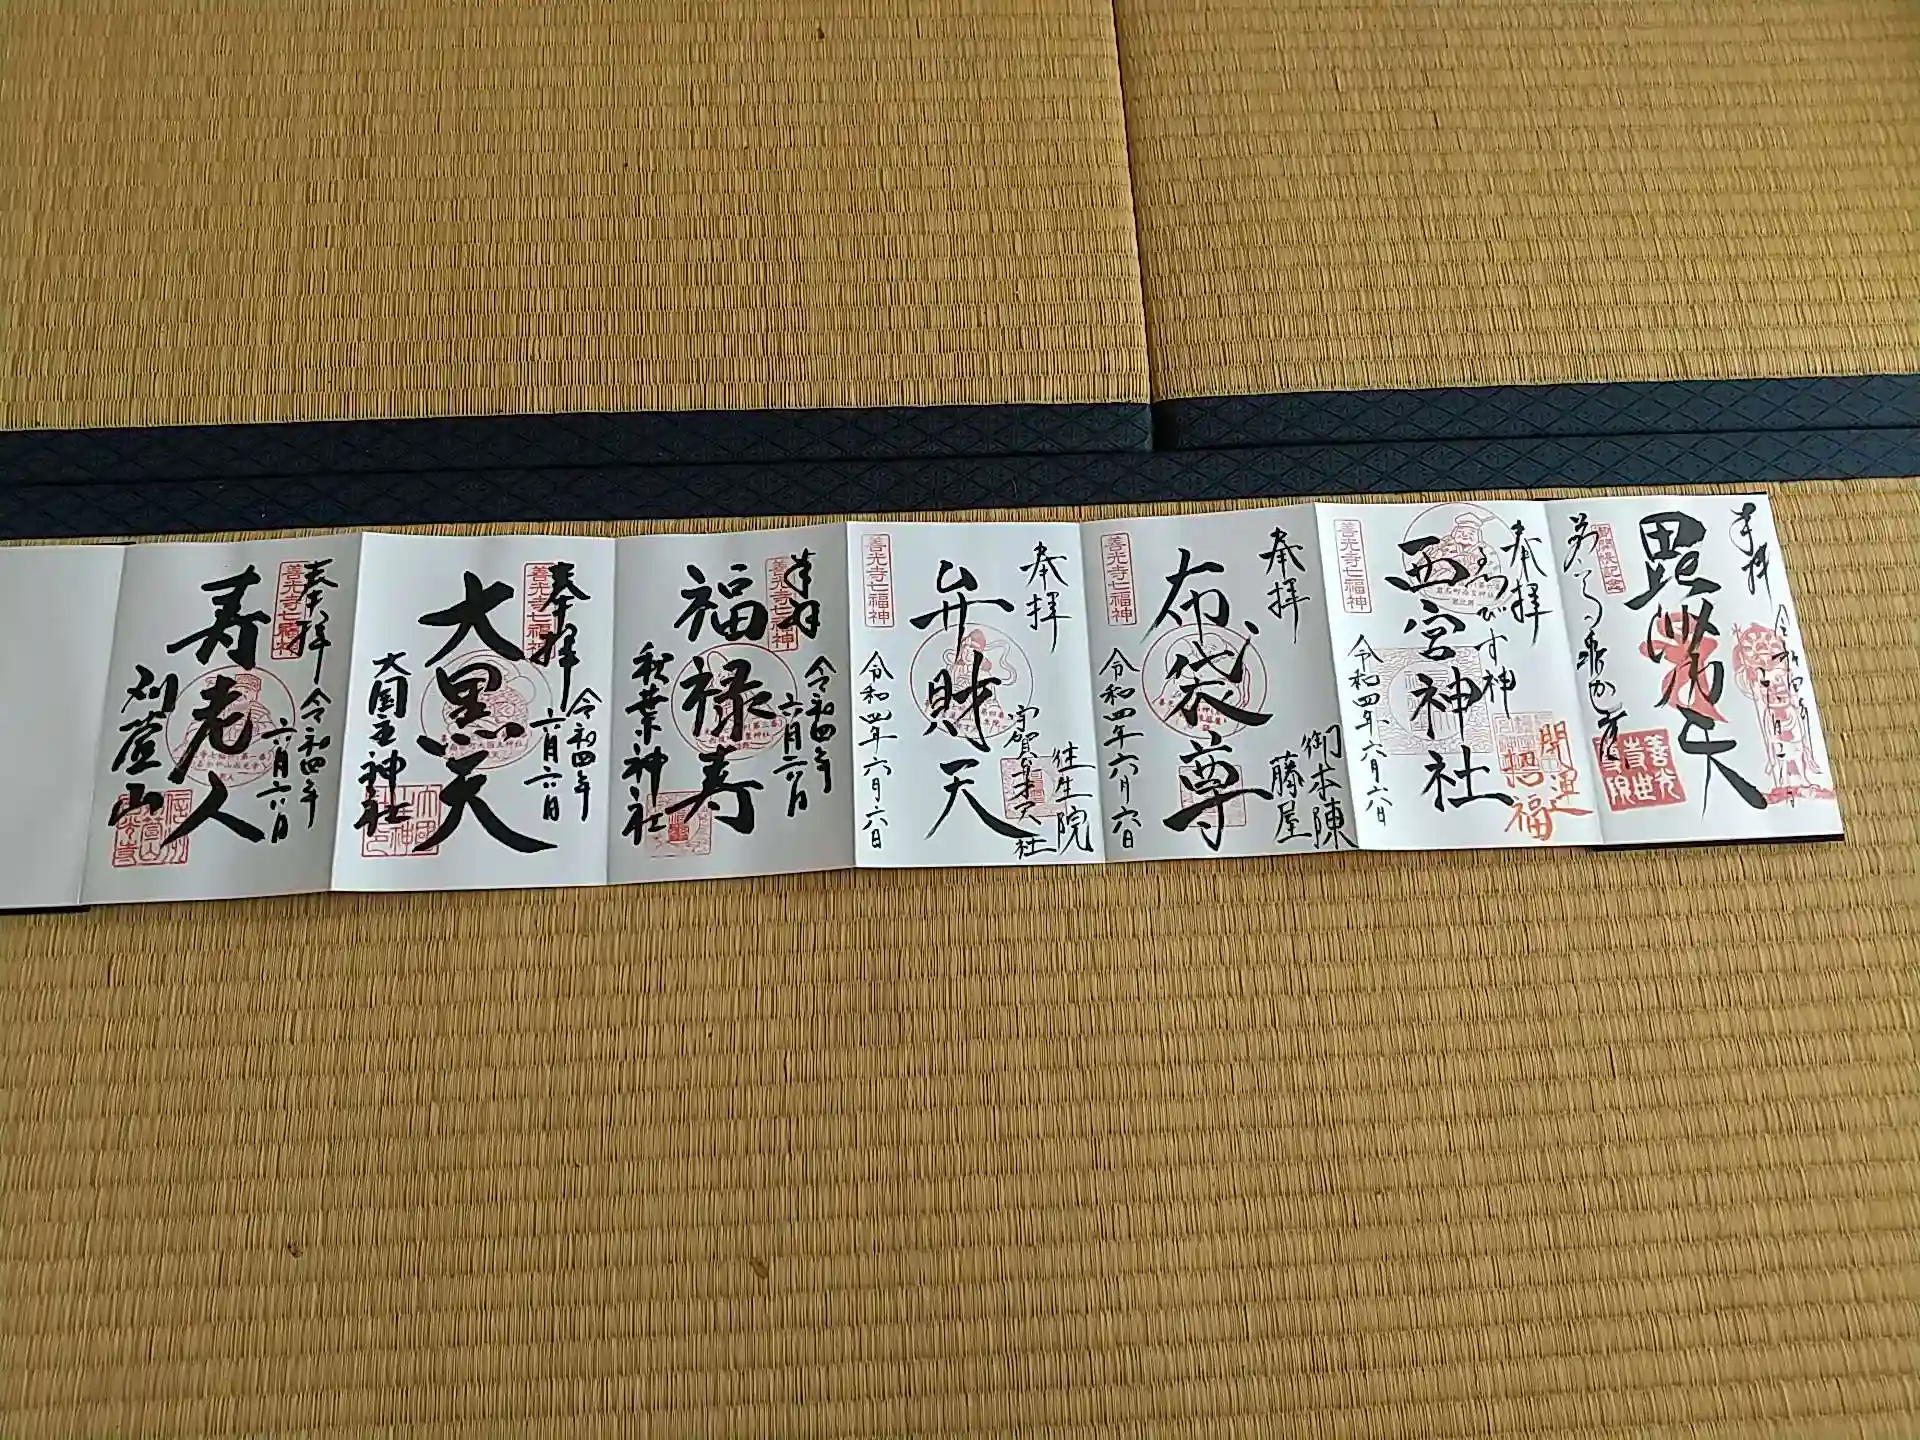 奉拝
毘沙門天
御開帳記念
善光
寺世
尊院
奉拝
ゑびす神
西宮神社
開運
招福
善光寺七福神
令和四年六月六日
奉拝
御本陳
藤屋
布袋尊
善光寺七福神
令和四年六月六日
奉拝
往生院
弁財天
善光寺七福神
令和四年六月六日
奉拝
令和四年
六月六日
善光寺七福神
福禄寿
秋葉神社
奉拝
令和四年
六月六日
善光寺七福神
大黒天
大国主神社
奉拝
令和四年
六月六日
善光寺七福神
寿老人
刈萱山